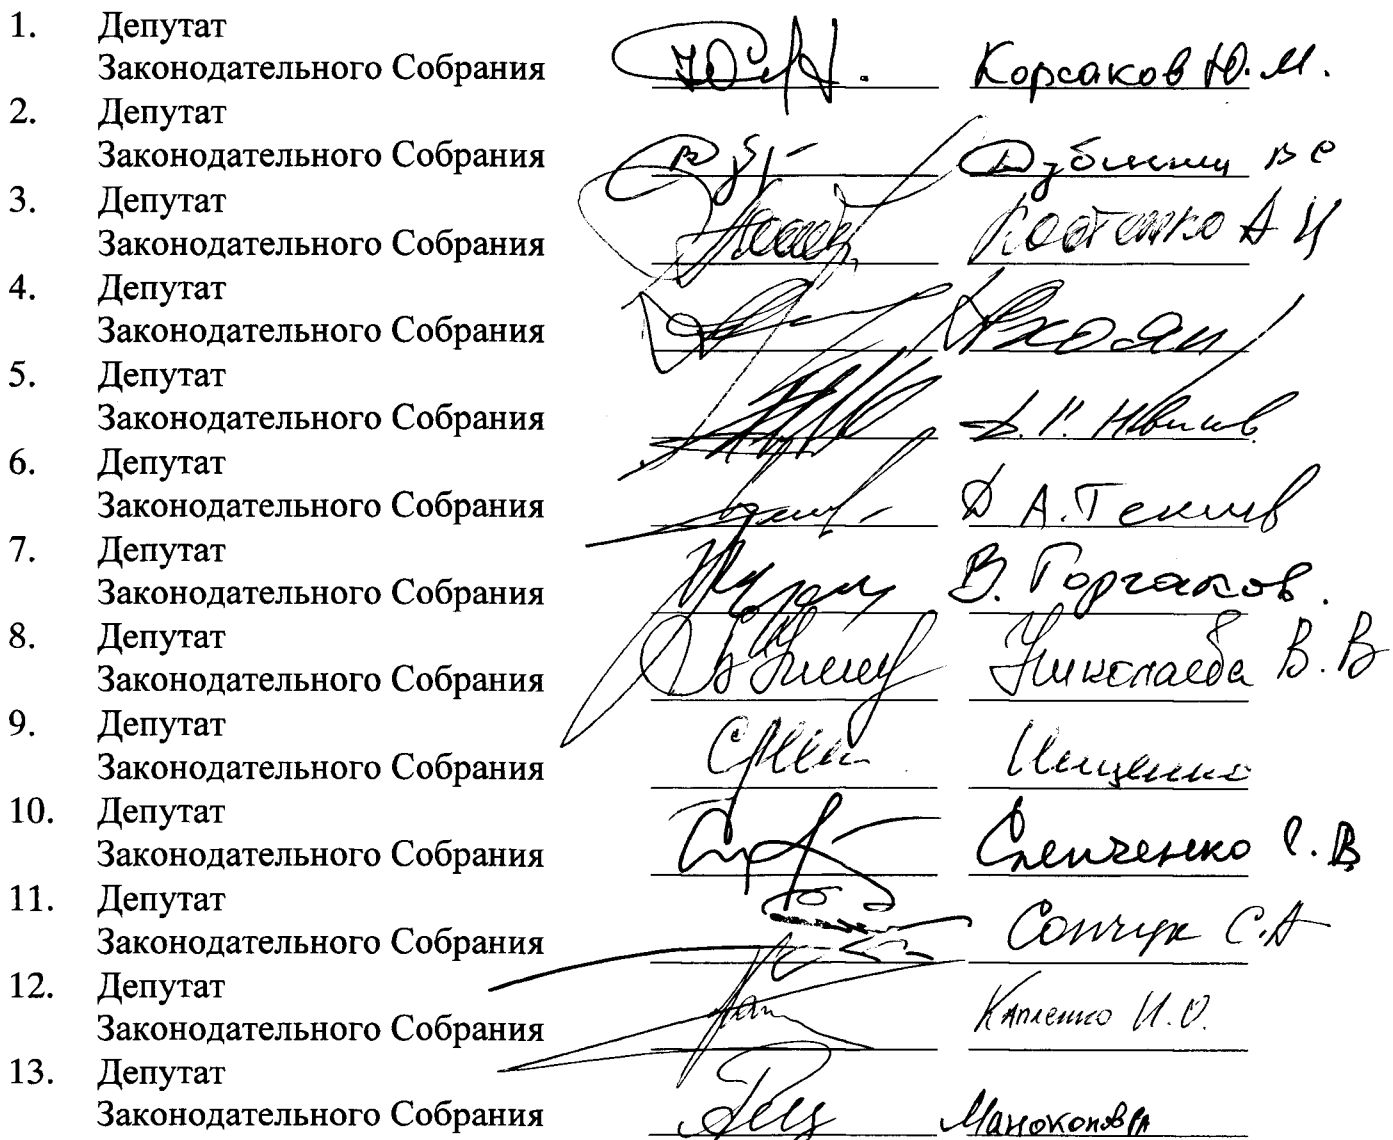 1. Депутат
Законодательного Собрания Корсаков Ю.М.
2. Депутат
Законодательного Собрания
3. Депутат
Законодательного Собрания Костенко А И
4. Депутат
Законодательного Собрания
5. Депутат
Законодательного Собрания
6. Депутат
Законодательного Собрания Д А. Текиев
7. Депутат
Законодательного Собрания В. Горчаков.
8. Депутат
Законодательного Собрания Николаева В.В
9. Депутат
Законодательного Собрания Ищенко
10. Депутат
Законодательного Собрания Слепченко С.В
11. Депутат
Законодательного Собрания Сопчук С.А
12. Депутат
Законодательного Собрания Капленко И.О.
13. Депутат
Законодательного Собрания